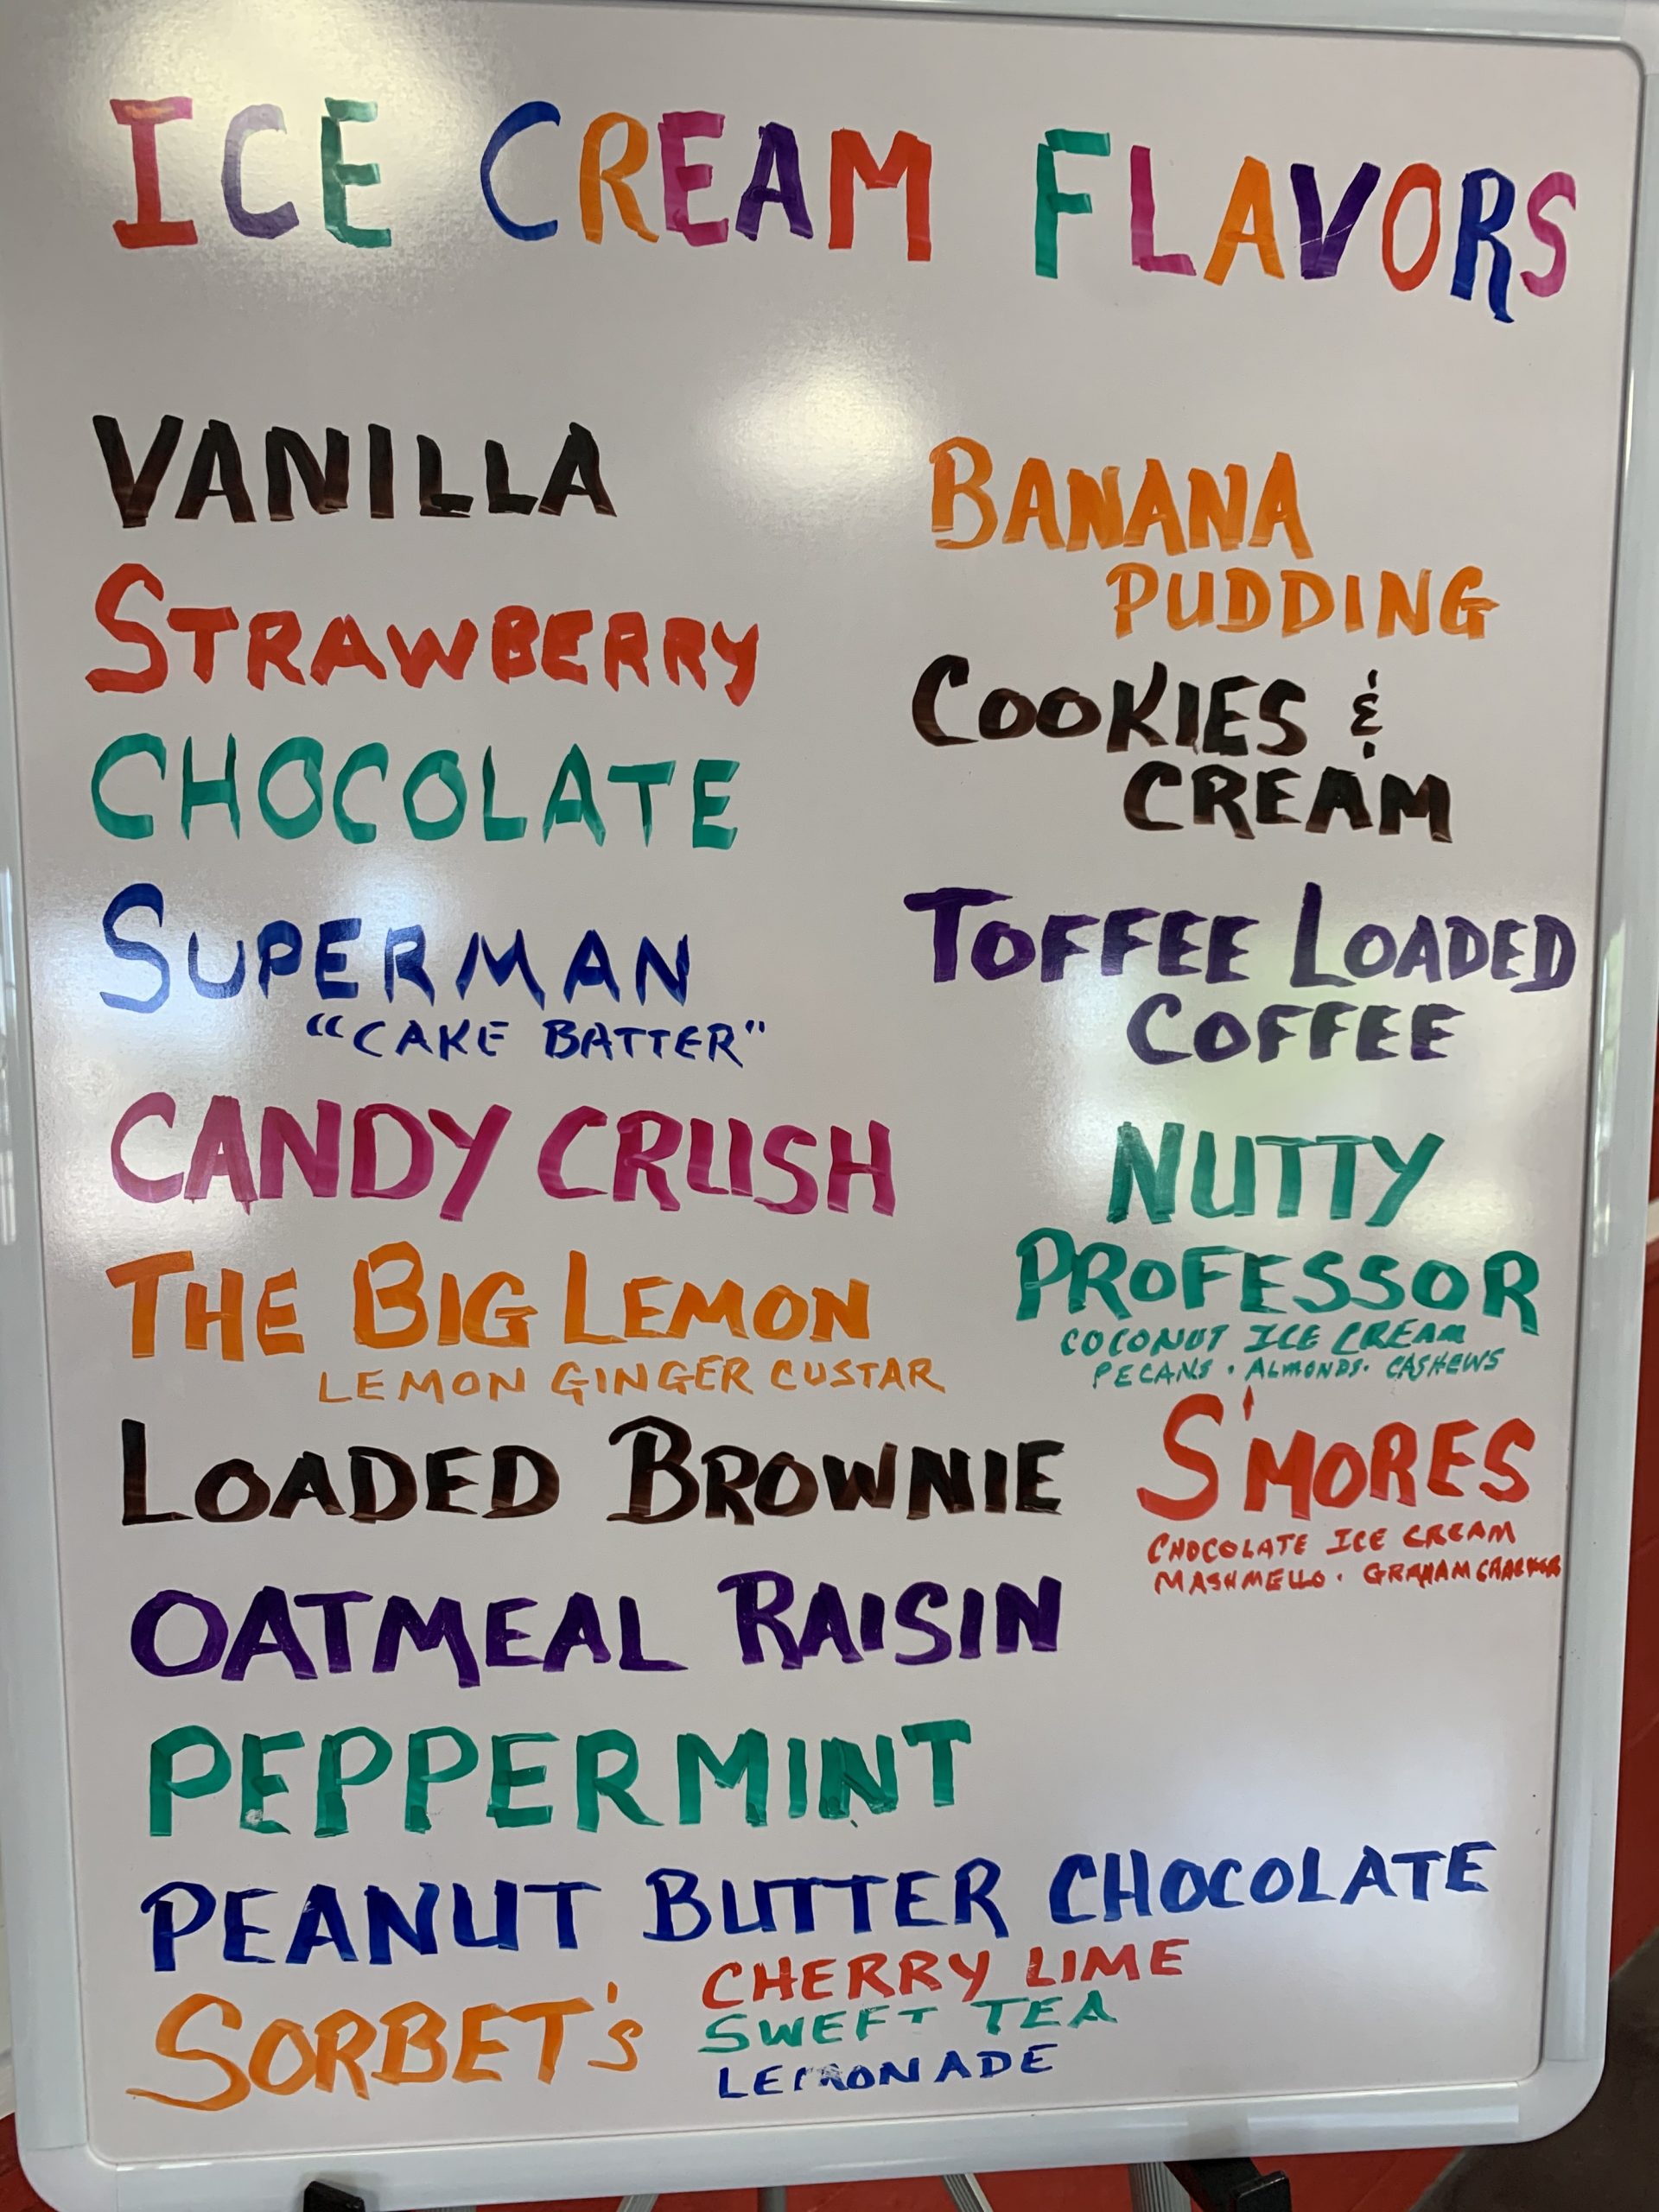 ICE CREAM FLAVORS
VANILLA
STRAWBERRY
CHOCOLATE
SUPERMAN
"CAKE BATTER"
CANDY CRUSH
THE BIG LEMON
LEMON GINGER CUSTAR
LOADED BROWNIE
OATMEAL RAISIN
PEPPERMINT
PEANUT BUTTER CHOCOLATE
BANANA
PUDDING
COOKIES &
CREAM
TOFFEE LOADED
COFFEE
NUTTY
PROFESSOR
COCONUT ICE CREAM
PECANS · ALMONDS · CASHEWS
S'MORES
CHOCOLATE ICE CREAM
MASHMELLO · GRAHAM CRACKER
SORBET's
CHERRY LIME
SWEET TEA
LEMONADE